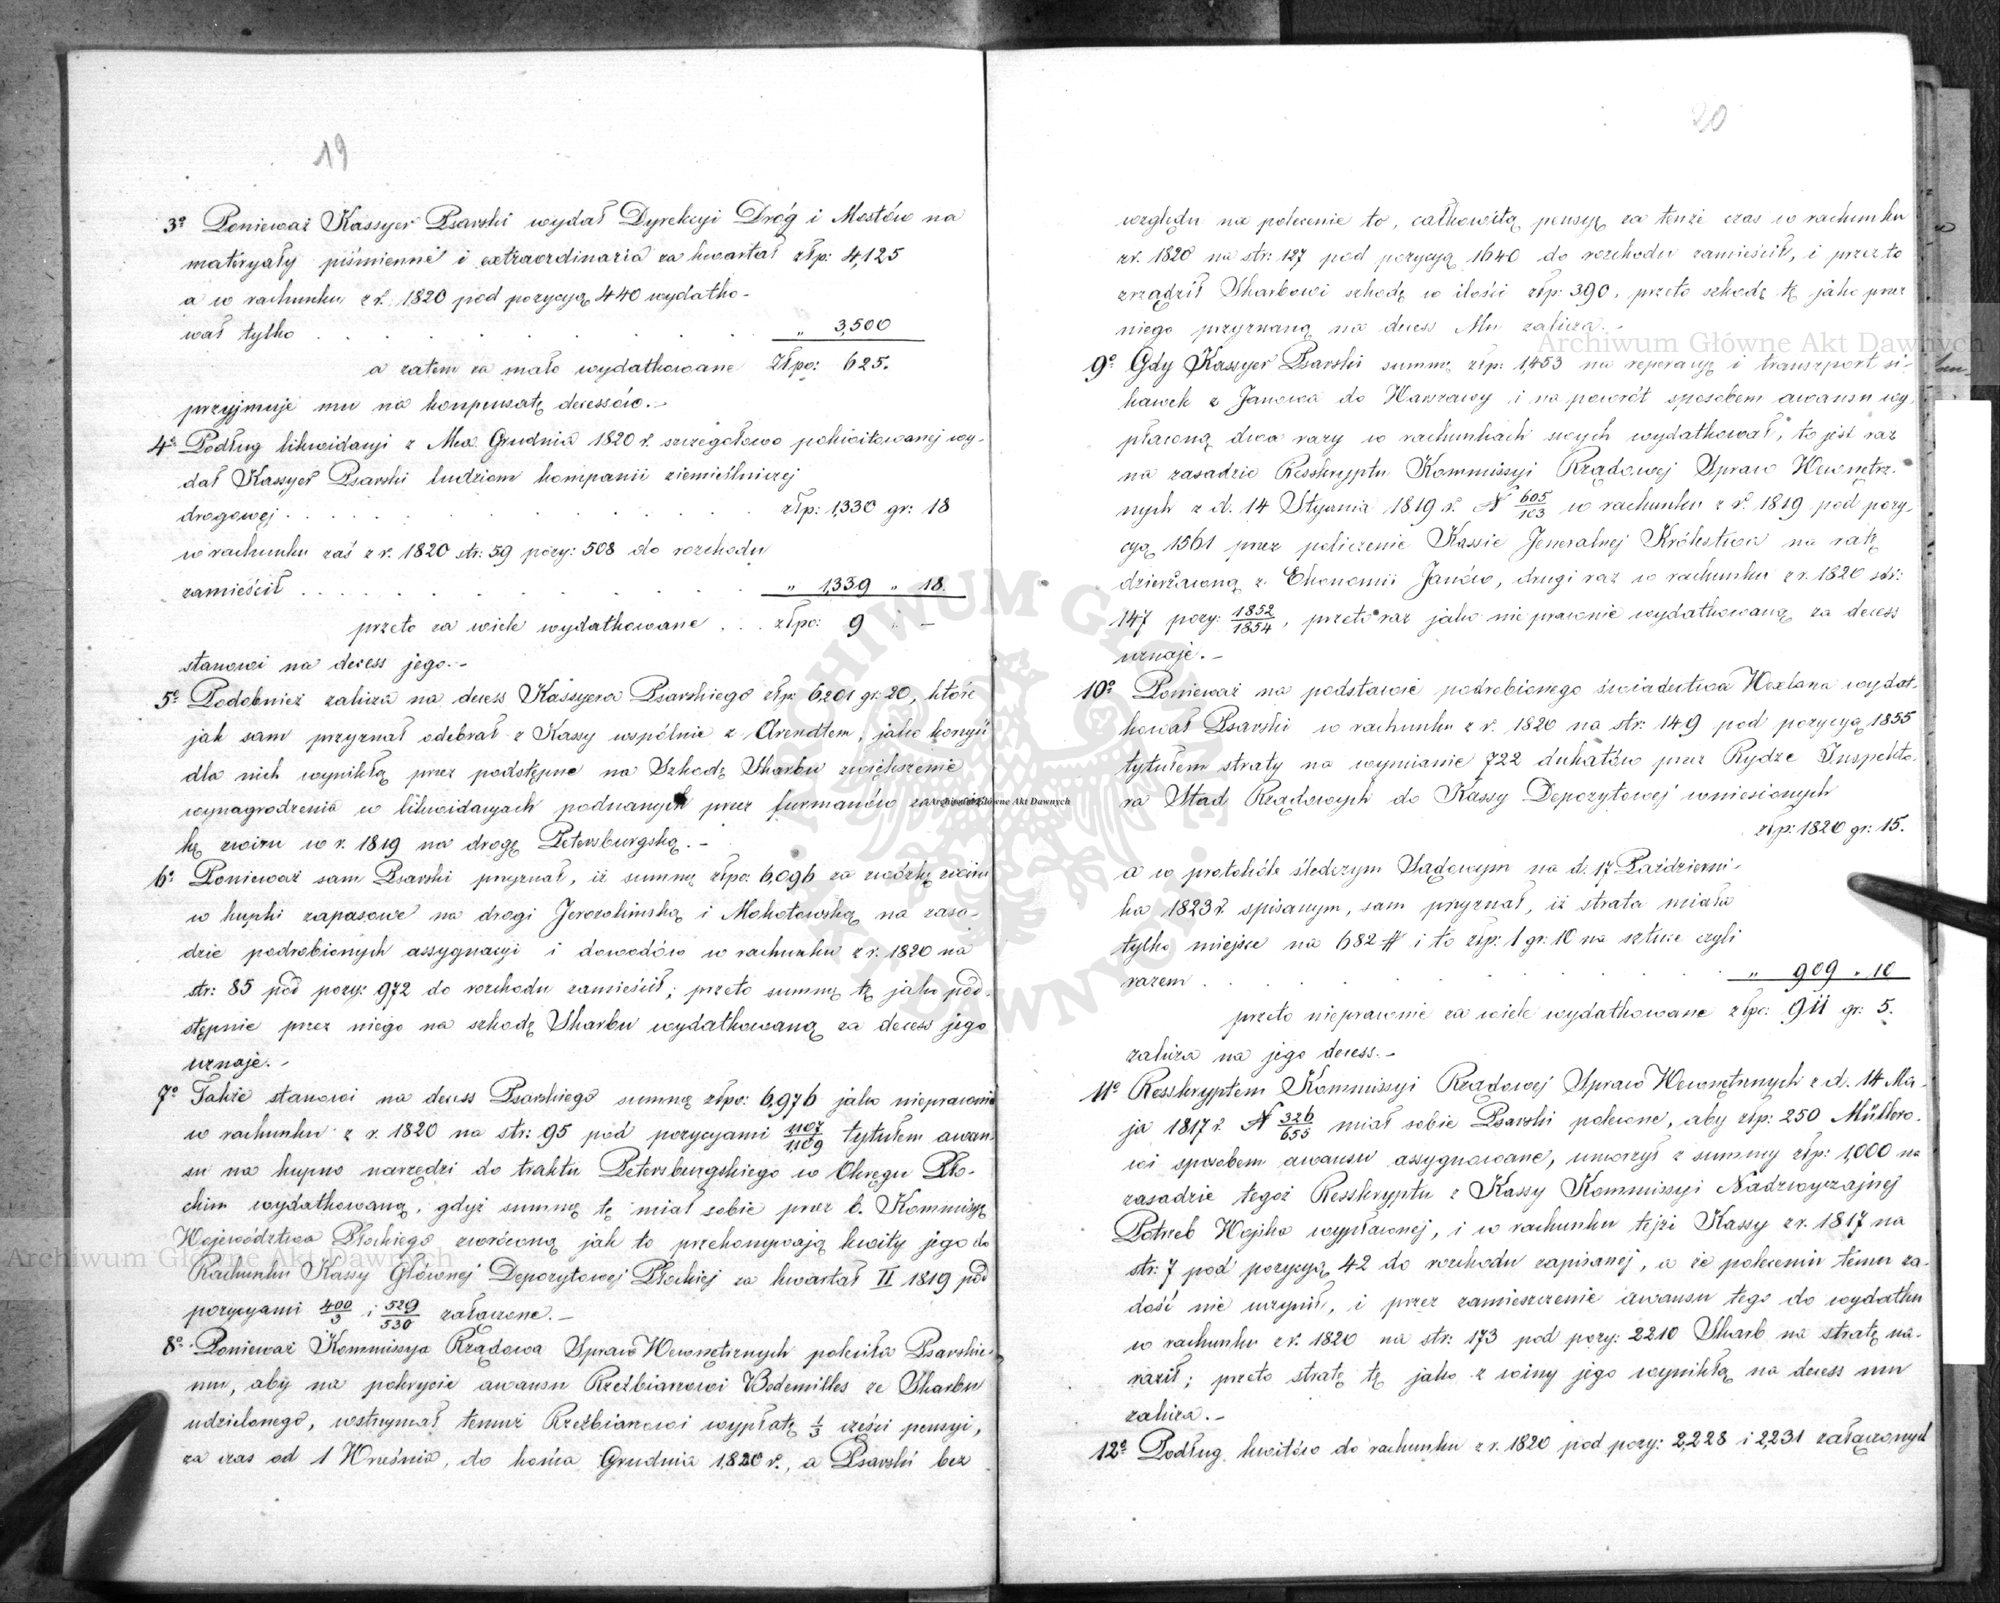 19
3º Ponieważ Kassyer Psarski wydał Dyrekcyi Dróg i Mostów na
materyały piśmienne i extraordinaria za kwartał złp: 4,125
a w rachunku z r. 1820 pod pozycyą 440 wydatko-
wał tylko . . . . . . „ 3,500
a zatem za mało wydatkowane Złpo: 625.
przyjmuje mu na kompensatę decessów.-
4º Podług likwidacyi z Mca Grudnia 1820 r. szczegółowo pokwitowanej wy-
dał Kassyer Psarski ludziom kompanii rzemieślniczej
drogowej . . . . . . złp: 1,330 gr: 18
w rachunku zaś z r. 1820 str: 59 pozy: 508 do rozchodu
zamieścił . . . . . . „ 1,339 „ 18.
przeto za wiele wydatkowane . . złpo: 9 : -
stanowi na decess jego.-
5º Podobnież zalicza na decess Kassyera Psarskiego złp: 6,201 gr: 20, które
jak sam przyznał odebrał z Kassy wspólnie z Arendtem, jako korzyść
dla nich wynikłą przez podstępne na Szkodę Skarbu zwiększenie
wynagrodzenia w likwidacyach podwanych przez furmanów za zwóz-
kę żwiru w r. 1819 na drogę Petersburgską.-
6º Ponieważ sam Psarski przyznał, iż summę złpo: 6,096 za zwózkę żwiru
w kupki zapasowe na drogi Jerozolimską i Mokotowską na zasa-
dzie podrobionych assygnacyi i dowodów w rachunku z r. 1820 na
str: 85 pod pozy: 972 do rozchodu zamieścił; przeto summę tę jako pod-
stępnie przez niego na szkodę Skarbu wydatkowaną za decess jego
uznaje.-
7º Także stanowi na decess Psarskiego summę złpo: 6,976 jako nieprawnie
w rachunku z r. 1820 na str: 95 pod pozycyami 1107/1109 tytułem awan-
su na kupno narzędzi do traktu Petersburgskiego w Okręgu Pło-
ckim wydatkowaną, gdyż summę tę miał sobie przez b. Kommissyę
Województwa Płockiego zwróconą jak to przekonywają kwity jego do
Rachunku Kassy Głównej Depozytowej Płockiej za kwartał II 1819 pod
pozycyami 400/3 i 529/530 załączone.-
8º Ponieważ Kommissya Rządowa Spraw Wewnętrznych poleciła Psarskie-
mu, aby na pokrycie awansu Rzeźbiarzowi Bodemilles ze Skarbu
udzielonego, wstrzymał temuż Rzeźbiarzowi wypłatę 1/3 części pensyi,
za czas od 1 Września, do końca Grudnia 1820 r., a Psarski bez
20
względu na polecenie to, całkowitą pensyę za tenże czas w rachunku
z r. 1820 na str: 127 pod pozycyą 1640 do rozchodu zamieścił, i przez to
zrządził Skarbowi szkodę w ilości złp: 390, przeto szkodę tę jako przez
niego przyznaną na decess Mu zalicza.-
9º Gdy Kassyer Psarski summę złp: 1,453 na reperacyę i transport si-
kawek z Janowa do Warszawy i na powrót sposobem awansu wy-
płaconą dwa razy w rachunkach swych wydatkował, to jest raz
na zasadzie Resskryptu Kommissyi Rządowej Spraw Wewnętrz-
nych z d. 14 Stycznia 1819 r. N 605/103 w rachunku z r. 1819 pod pozy-
cyą 1561 przez policzenie Kassie Jeneralnej Królestwa na ratę
dzierżawną z Ekonomii Janów, drugi raz w rachunku z r. 1820 str:
147 pozy: 1852/1854, przeto raz jako nieprawnie wydatkowaną za decess
uznaje.-
10º Ponieważ na podstawie podrobionego świadectwa Wexlarza wydat-
kował Psarski w rachunku z r. 1820 na str: 149 pod pozycyą 1855
tytułem straty na wymianie 722 dukatów przez Rydze Inspekto-
ra Stad Rządowych do Kassy Depozytowej wniesionych
złp: 1820 gr: 15.
a w protokóle śledczym Sądowym na d. 17 Październi-
ka 1823 r. spisanym, sam przyznał, iż strata miała
tylko miejsce na 682 # i to złp: 1 gr: 10 na sztuce czyli
razem . . . . . . „ 909 „ 10
przeto nieprawnie za wiele wydatkowane złpo: 911 gr: 5.
zalicza na jego decess.-
11º Resskryptem Kommissyi Rządowej Spraw Wewnętrznych z d. 14 Ma-
ja 1817 r. N 326/655 miał sobie Psarski polecone, aby złp: 250 Müllero-
wi sposobem awansu assygnowane, umorzył z summy złp: 1,000 na
zasadzie tegoż Resskryptu z Kassy Kommissyi Nadzwyczajnej
Potrzeb Wojska wypłaconej, i w rachunku tejże Kassy z r. 1817 na
str: 7 pod pozycyą 42 do rozchodu zapisanej, a że poleceniu temu za-
dość nie uczynił, i przez zamieszczenie awansu tego do wydatku
w rachunku z r. 1820 na str: 173 pod pozy: 2210 Skarb na stratę na-
raził; przeto stratę tę jako z winy jego wynikłą na decess mu
zalicza.-
12º Podług kwitów do rachunku z r. 1820 pod pozy: 2,228 i 2,231 załączonych
Archiwum Główne Akt Dawnych
Archiwum Główne Akt Dawnych
Archiwum Główne Akt Dawnych
ARCHIWUM GŁÓWNE AKT DAWNYCH